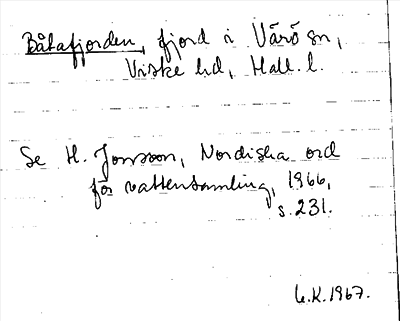 Båtafjorden, fjord i Värö sn,
Viske hd, Hall. l.
Se H. Jonsson, Nordiska ord
för vattensamling, 1966,
s. 231.
G.K. 1967.